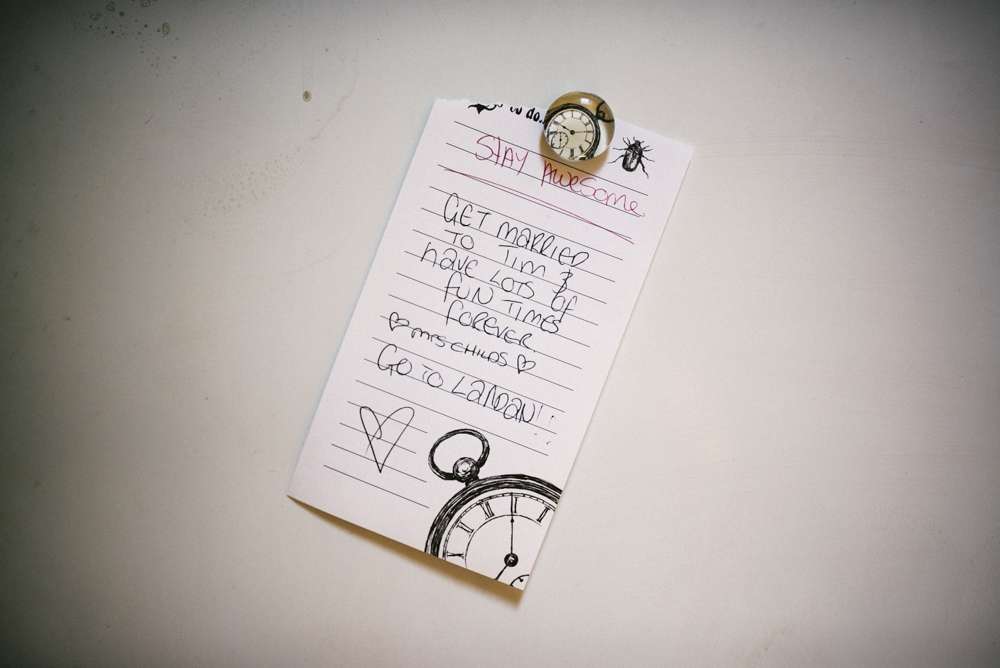 to do..
STAY AWESOME
GET MARRIED
TO TIM &
HAVE LOTS OF
FUN TIMES
FOREVER.
♡ MRS CHILDS ♡
GO TO LANDAN!!